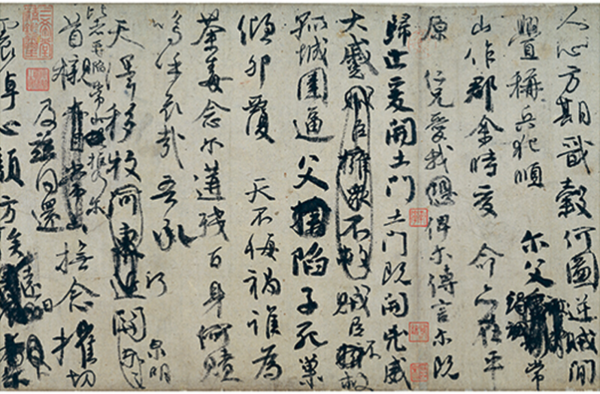 人心方期戩穀何圖逆賊間
釁稱兵犯順爾父竭誠常
山作郡余時受命亦在平
原仁兄愛我俾爾傳言爾既
歸止爰開土門土門既開凶威
大蹙賊臣擁眾不救賊臣不救
孤城圍逼父擒陷子死巢
傾卵覆天不悔禍誰為
荼毒念爾遘殘百身何贖
嗚呼哀哉吾承
天澤移牧河東近河關泉明
比者再陷常山攜爾
首櫬及茲同還撫念摧切
震悼心顏方俟遠日